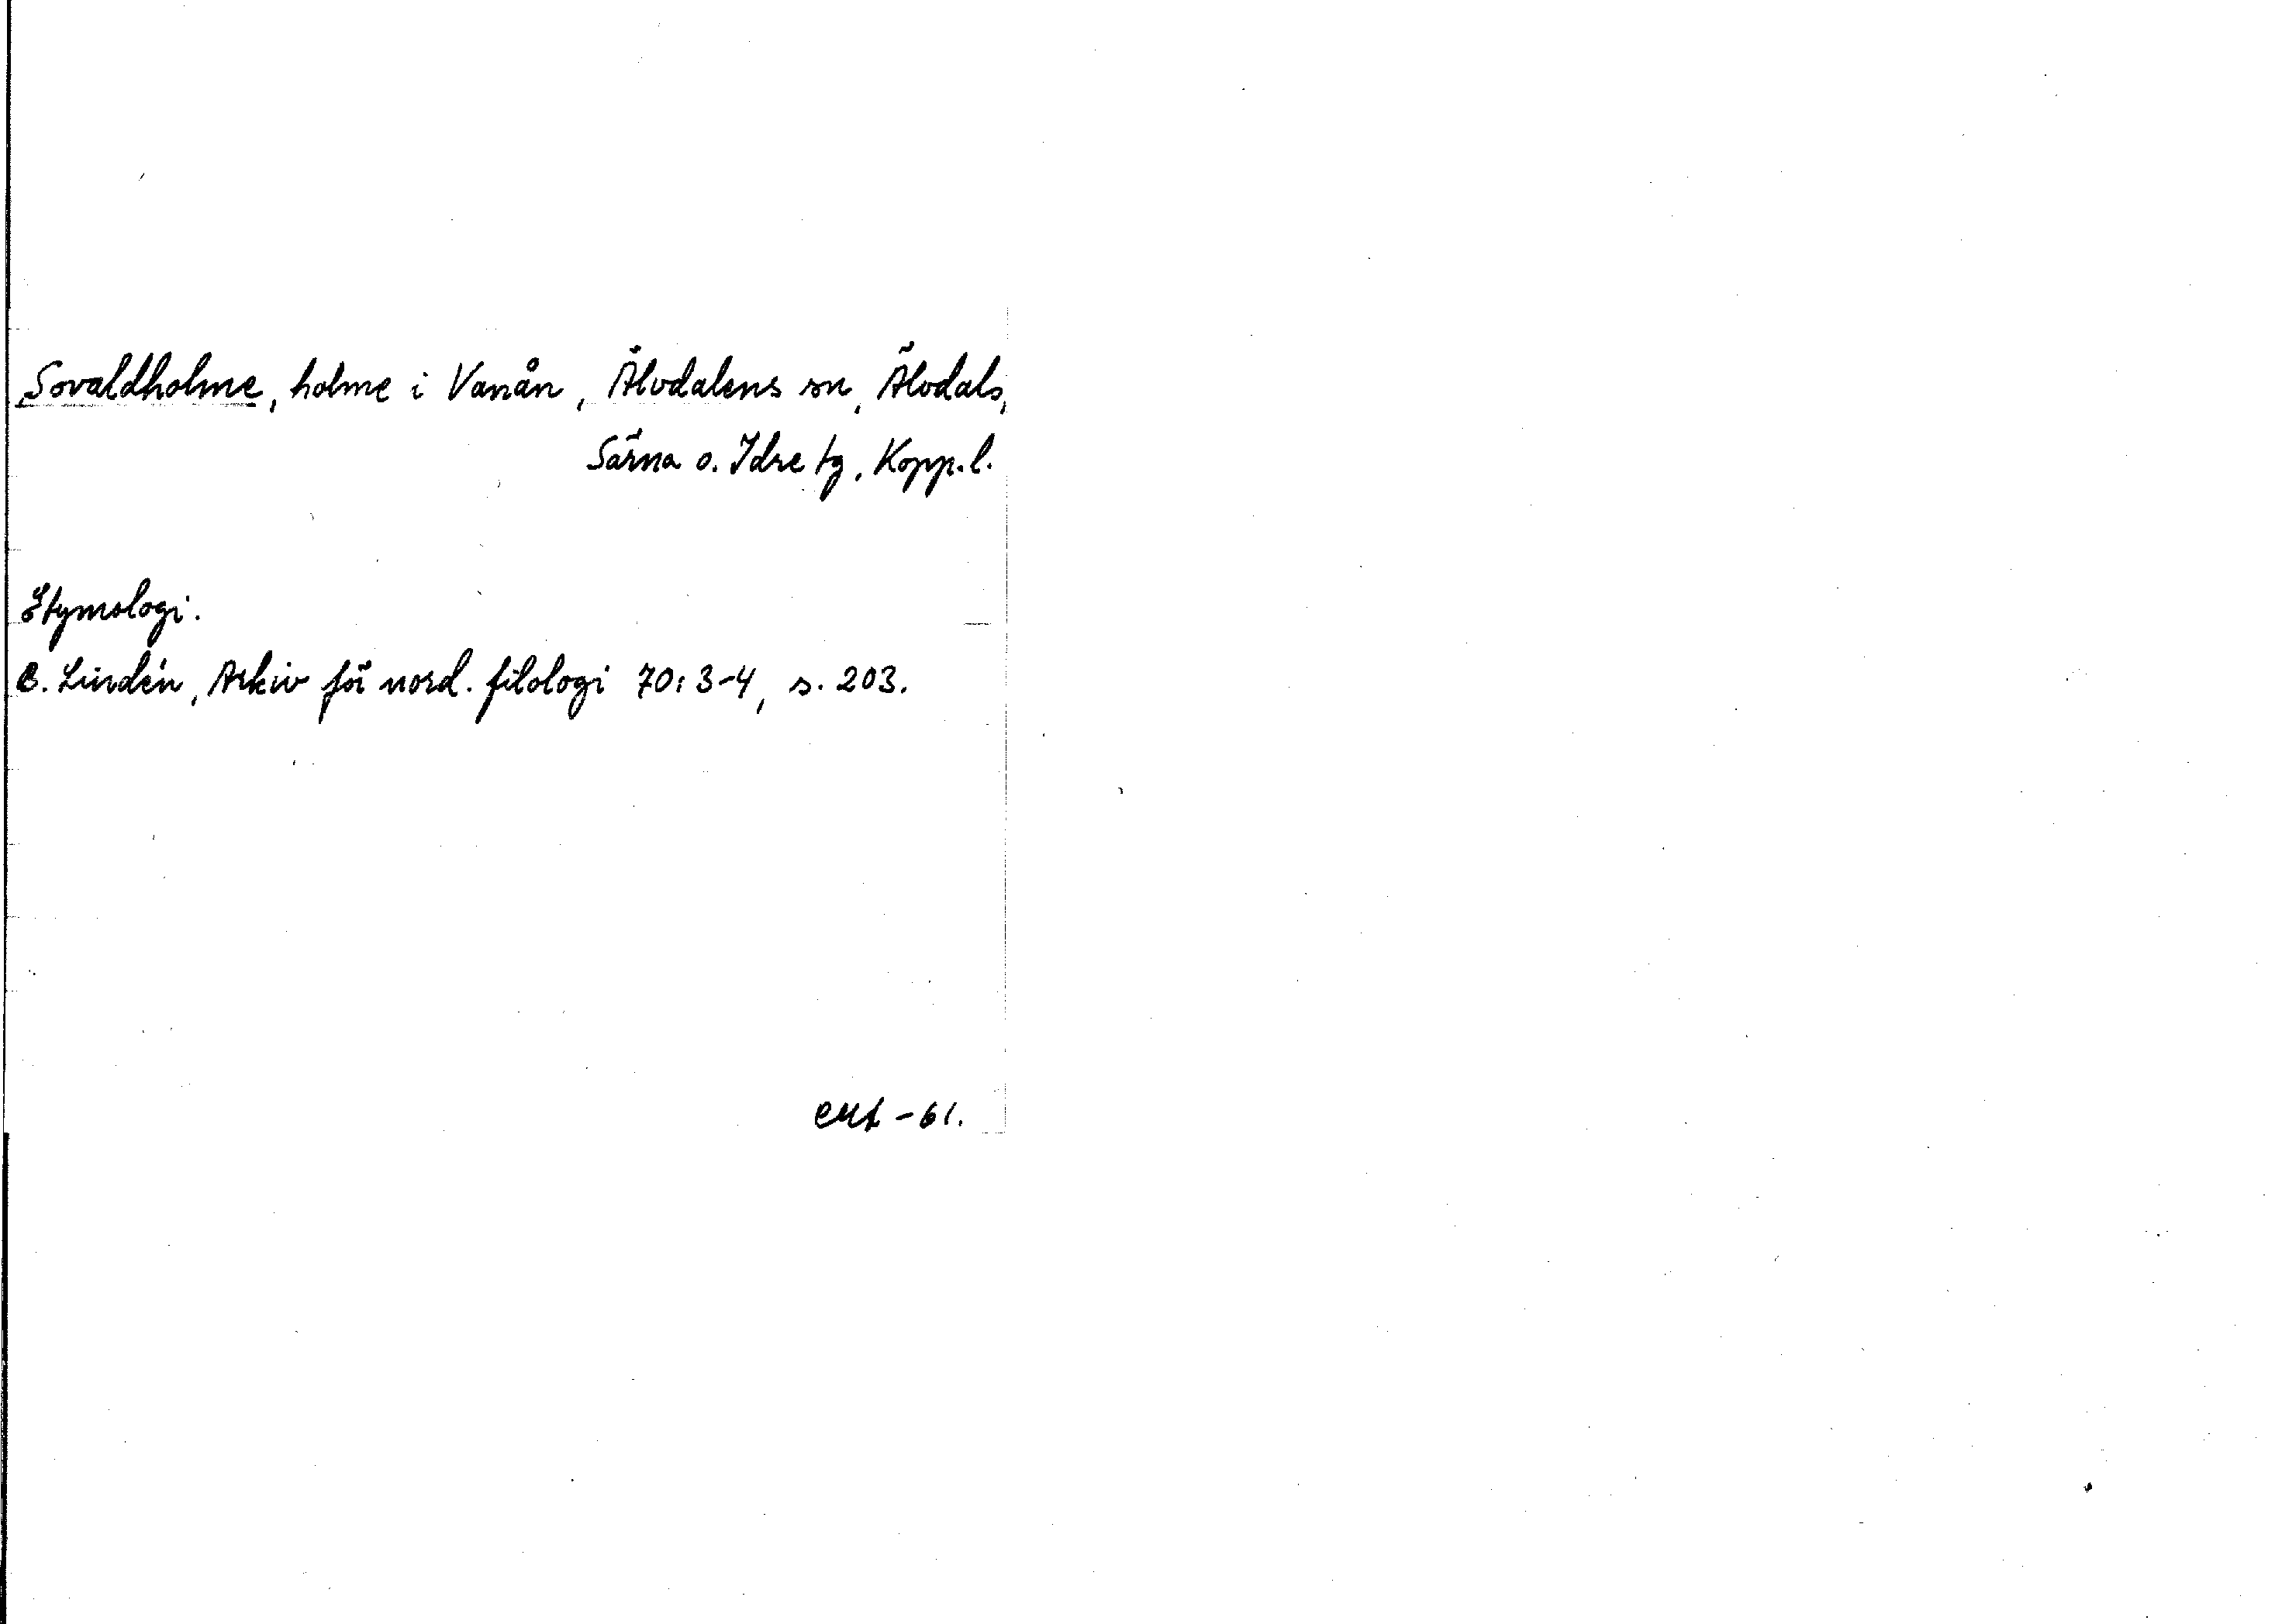 Sovaldholme, holme i Vanån, Älvdalens sn, Älvdals,
Särna o. Idre tg, Kopp. l.
Etymologi.
B. Lindén, Arkiv för nord. filologi 70: 3-4, s. 203.
-61.